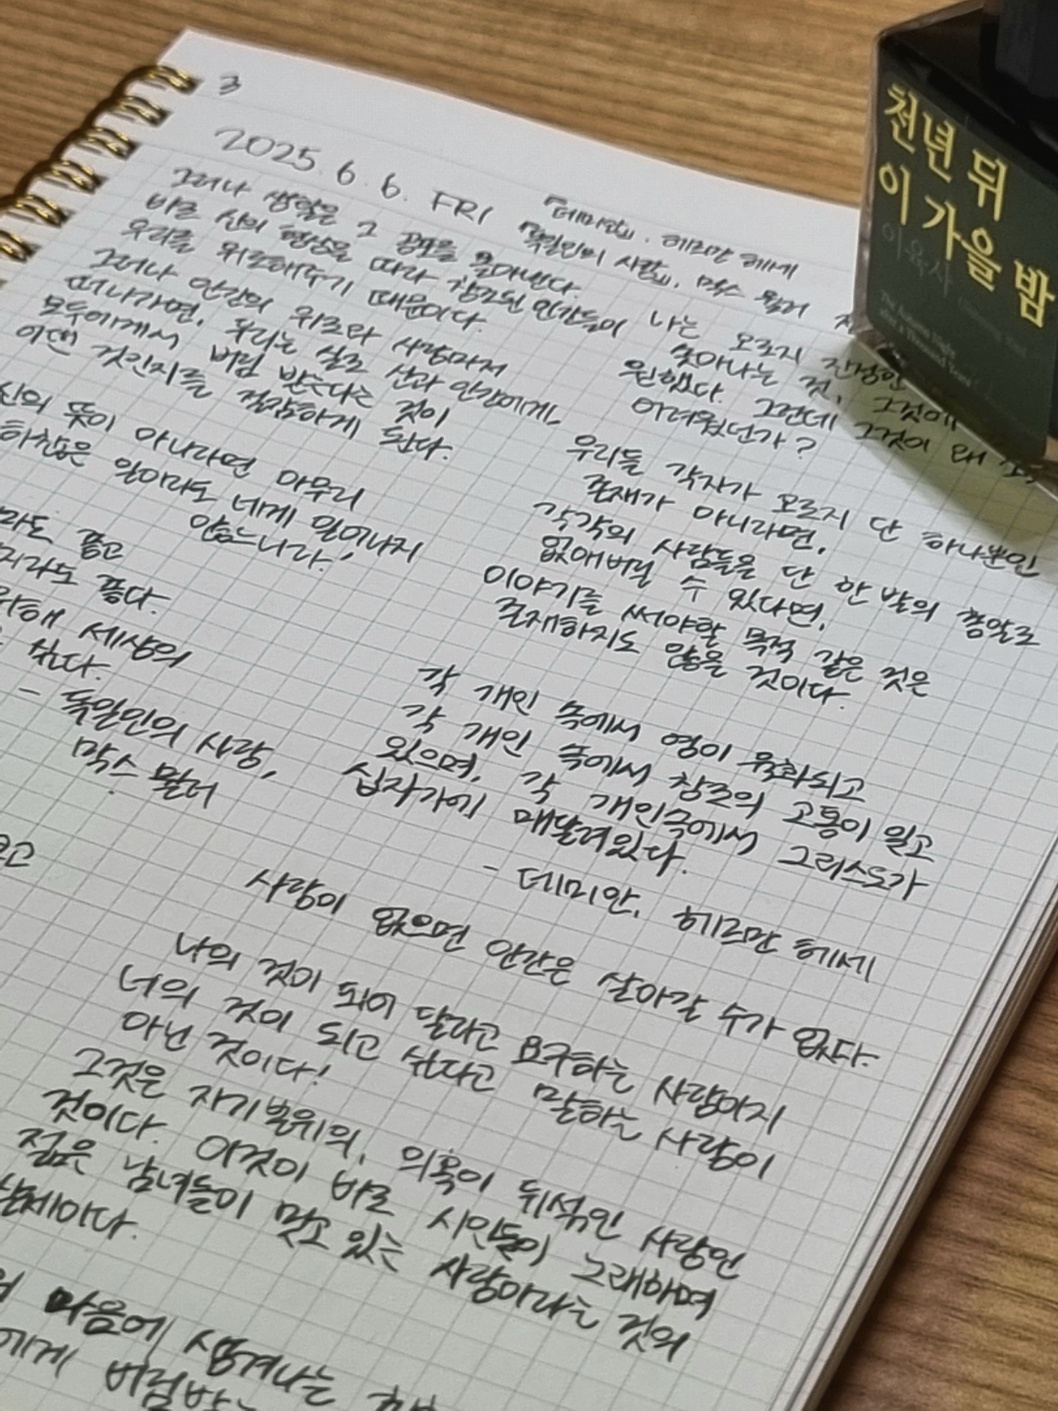 3
2025. 6. 6. FRI
『데미안』, 헤르만 헤세
『독일인의 사랑』, 막스 뮐러
그러나 생활은 그 공포를 몰아낸다.
바로 신의 형상을 따라 창조된 인간들이
우리를 위로해주기 때문이다.
그러나 인간의 위로와 사랑마저
떠나가면, 우리는 실로 신과 인간에게,
모두에게서 버림 받는다는 것이
어떤 것인지를 절감하게 된다.
신의 뜻이 아니라면 아무리
하찮은 일이라도 네게 일어나지
않느니라!
라도 좋고
지라도 좋다.
위해 세상의
싶다.
- 독일인의 사랑,
막스 뮐러
나는 오로지 진정한
살아나는 것, 그것에
원했다. 그런데 그것이 왜
어려웠던가?
우리들 각자가 오로지 단 하나뿐인
존재가 아니라면,
각각의 사람들을 단 한 발의 총알로
없애버릴 수 있다면,
이야기를 써야할 목적 같은 것은
존재하지도 않을 것이다.
각 개인 속에서 영이 육화되고
각 개인 속에서 창조의 고통이 일고
있으며, 각 개인속에서 그리스도가
십자가에 매달려있다.
- 데미안, 헤르만 헤세
사랑이 없으면 인간은 살아갈 수가 없다.
나의 것이 되어 달라고 요구하는 사랑이지
너의 것이 되고 싶다고 말하는 사랑이
아닌 것이다!
그것은 자기본위의, 의혹이 뒤섞인 사랑인
것이다. 이것이 바로 시인들이 그래하며
젊은 남녀들이 믿고 있는 사랑이라는 것의
실체이다.
마음에 생겨나는
에게 버림받는
천년 뒤
이 가을 밤
이육사